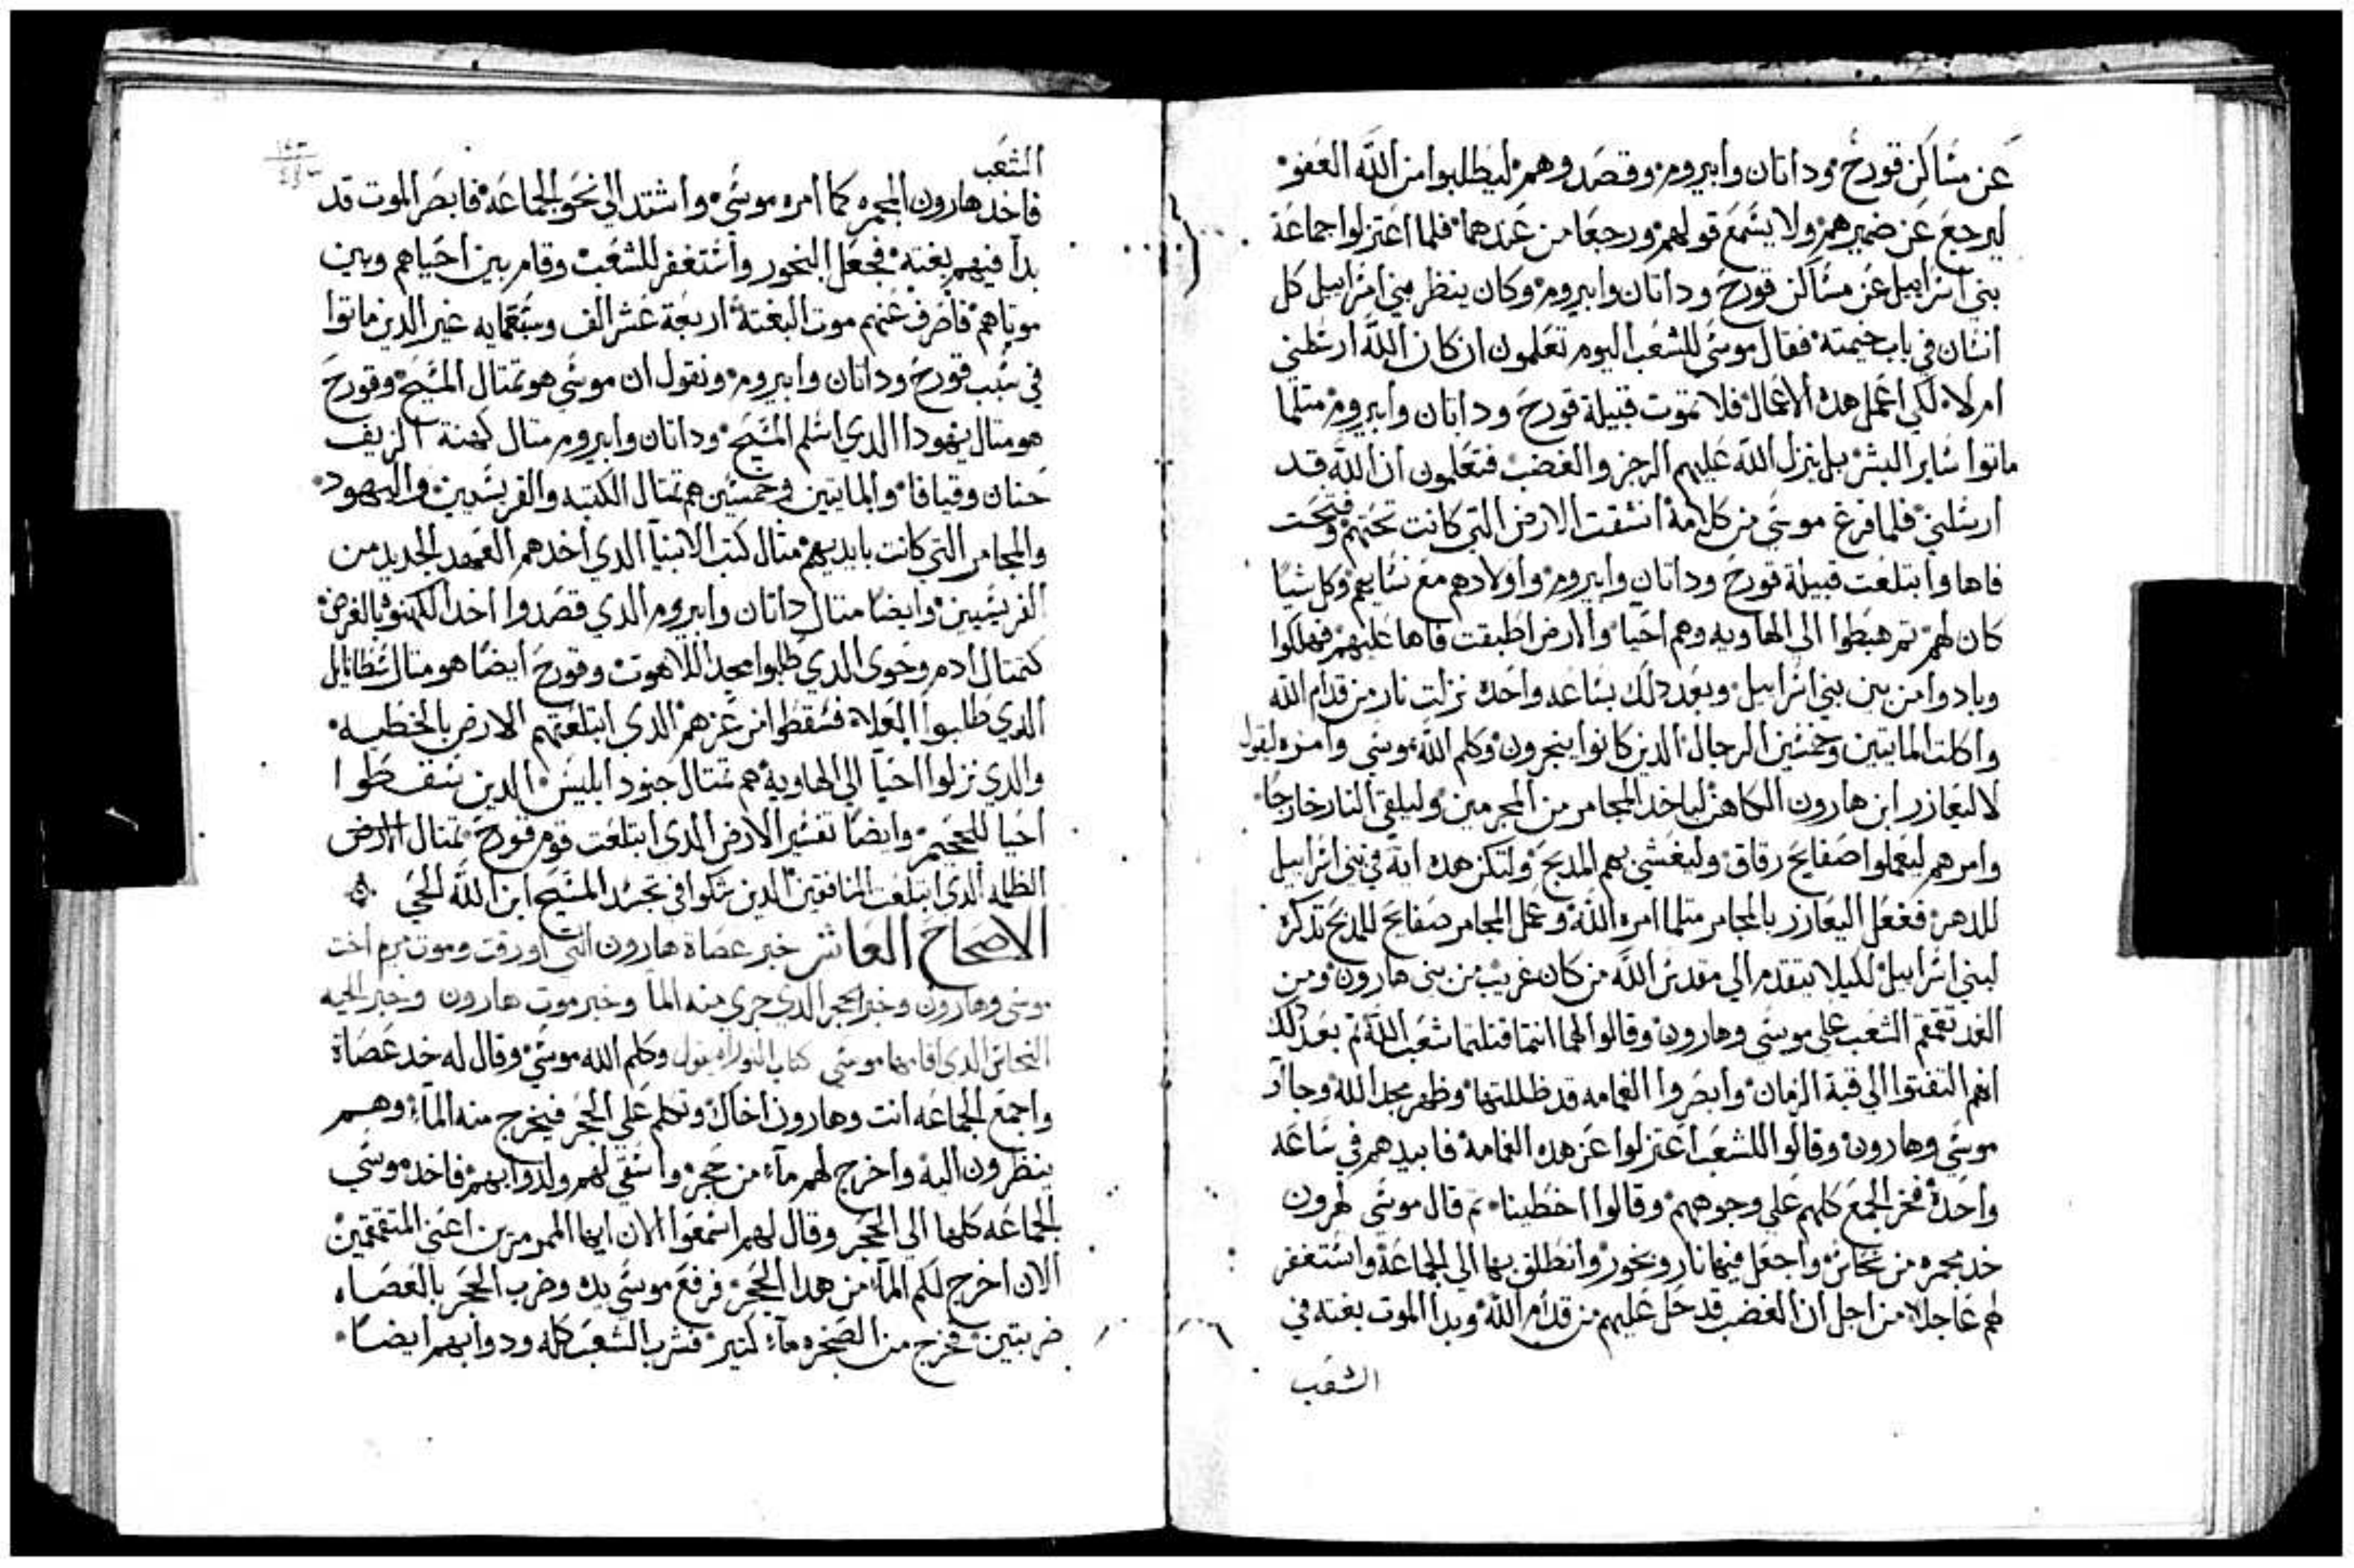 عن مساكن قورح وداتان وابيروم وقصدوهم ليطلبوا من الله العفو
ليرجع عن ضميرهم ولا يسمع قولهم ورجعا من عندهما فلما اعتزلوا جماعة
بني اسراييل عن مساكن قورح وداتان وابيروم وكان ينظر بني اسراييل كل
انسان في باب خيمته فقال موسي للشعب اليوم تعلمون ان كان الله ارسلني
ام لا لكي اعمل هده الاعمال فلا تموت قبيلة قورح وداتان وابيروم متلما
ماتوا ساير البشر بل ينزل الله عليهم الرجز والغضب فتعلمون ان الله قد
ارسلني فلما فرغ موسي من كلامه انشقت الارض التي كانت تحتهم وفتحت
فاها وابتلعت قبيلة قورح وداتان وابيروم واولادهم مع نسايهم وكل شيا
كان لهم تم هبطوا الي الهاويه وهم احيا والارض اطبقت فاها عليهم فهلكوا
وبادوا من بين بني اسراييل وبعد دلك بساعه واحده نزلت نار من قدام الله
واكلت المايتين وخمسين الرجال الدين كانوا يبخرون وكلم الله موسي وامره ليقول
لاليعازر ابن هارون الكاهن لياخد المجامر من المجرمين وليلقي النار خارجا
وامرهم ليعملوا صفايح رقاق وليغشي بهم المدبح ولتكن هده ايه في بني اسراييل
للدهر ففعل اليعازر بالمجامر متلما امره الله وعمل المجامر صفايح للمدبح تدكره
لبني اسراييل لكيلا يتقدم الي مقدس الله من كان غريب من بني هارون ومن
الغد تقمقم الشعب علي موسي وهارون وقالوا لهما انتما قتلتما شعب الله تم بعد دلك
انهم التفتوا الي قبة الزمان وابصروا الغمامه قد ظللتها وظهر مجد الله وجاا
موسي وهارون وقالوا للشعب اعتزلوا عن هده الغمامة فابيدهم في ساعه
واحدة فخر الجمع كلهم علي وجوههم وقالوا اخطينا تم قال موسي لهرون
خد مجمره من نحاس واجعل فيها نار وبخور وانطلق بها الي الجماعة واستغفر
لهم عاجلا من اجل ان الغضب قد حل عليهم من قدام الله وبدا الموت بغته في
الشعب
الشعب
فاخد هارون المجمره كما امره موسي واشتد الي نحو الجماعة فابصر الموت قد
بدا فيهم بغته فجعل البخور واستغفر للشعب وقام بين احياهم وبين
موتاهم فاصرف عنهم موت البغتة اربعة عشر الف وسبعمايه غير الدين ماتوا
في سبب قورح وداتان وابيروم ونقول ان موسي هو تمتال المسيح وقورح
هو متال يهودا الدي اسلم المسيح وداتان وابيروم متال كهنة الزيف
حنان وقيافا والمايتين وخمسين هم تمتال الكتبه والفريسيين واليهود
والمجامر التي كانت بايديهم مثال كتب الانبيا الدي اخدهم العهد الجديد من
الفريسيين وايضا متال داتان وابيروم الدي قصدوا اخد الكهنوة بالغرض
كتمتال ادم وحوي الدي طلبوا مجد اللاهوت وقورح ايضا هو متال سطانايل
الدي طلبوا العلاء فسقطوا من عزهم الدي ابتلعتهم الارض بالخطيه
والدي نزلوا احيا الي الهاوية هم تمتال جنود ابليس الدين سقطوا
احيا للجحيم وايضا تفسير الارض الدي ابتلعت قوم قورح تمتال الارض
الظلمه الدي ابتلعت المنافقين الدين شكوا في تجسد المسيح ابن الله الحي
الاصحاح العاشر خبر عصاة هارون التي اورقت وموت مريم اخت
موسي وهارون وخبر الحجر الدي جري منه الما وخبر موت هارون وخبر الحيه
النحاس الدي اقامها موسي كتاب التوراه يقول وكلم الله موسي وقال له خد عصاة
واجمع الجماعه انت وهارون اخاك وتكلم علي الحجر فيخرج منه الماء وهم
ينظرون اليه واخرج لهم ماء من حجر واسقي لهم ولدوابهم فاخد موسي
الجماعه كلها الي الحجر وقال لهم اسمعوا الان ايها الممرمرين اعني المتقمقمين
الان اخرج لكم الماء من هدا الحجر فرفع موسي يده وضرب الحجر بالعصاه
ضربتين فخرج من الصخره ماء كتير فشرب الشعب كله ودوابهم ايضا